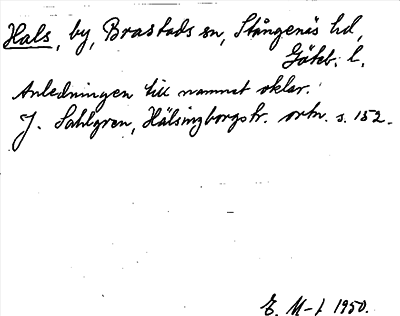 Hals, by, Brastads sn, Stångenäs hd,
Göteb. l.
Anledningen till namnet oklar.
J. Sahlgren, Hälsingborgstr. ortn. s. 152.
E. M-f 1950.